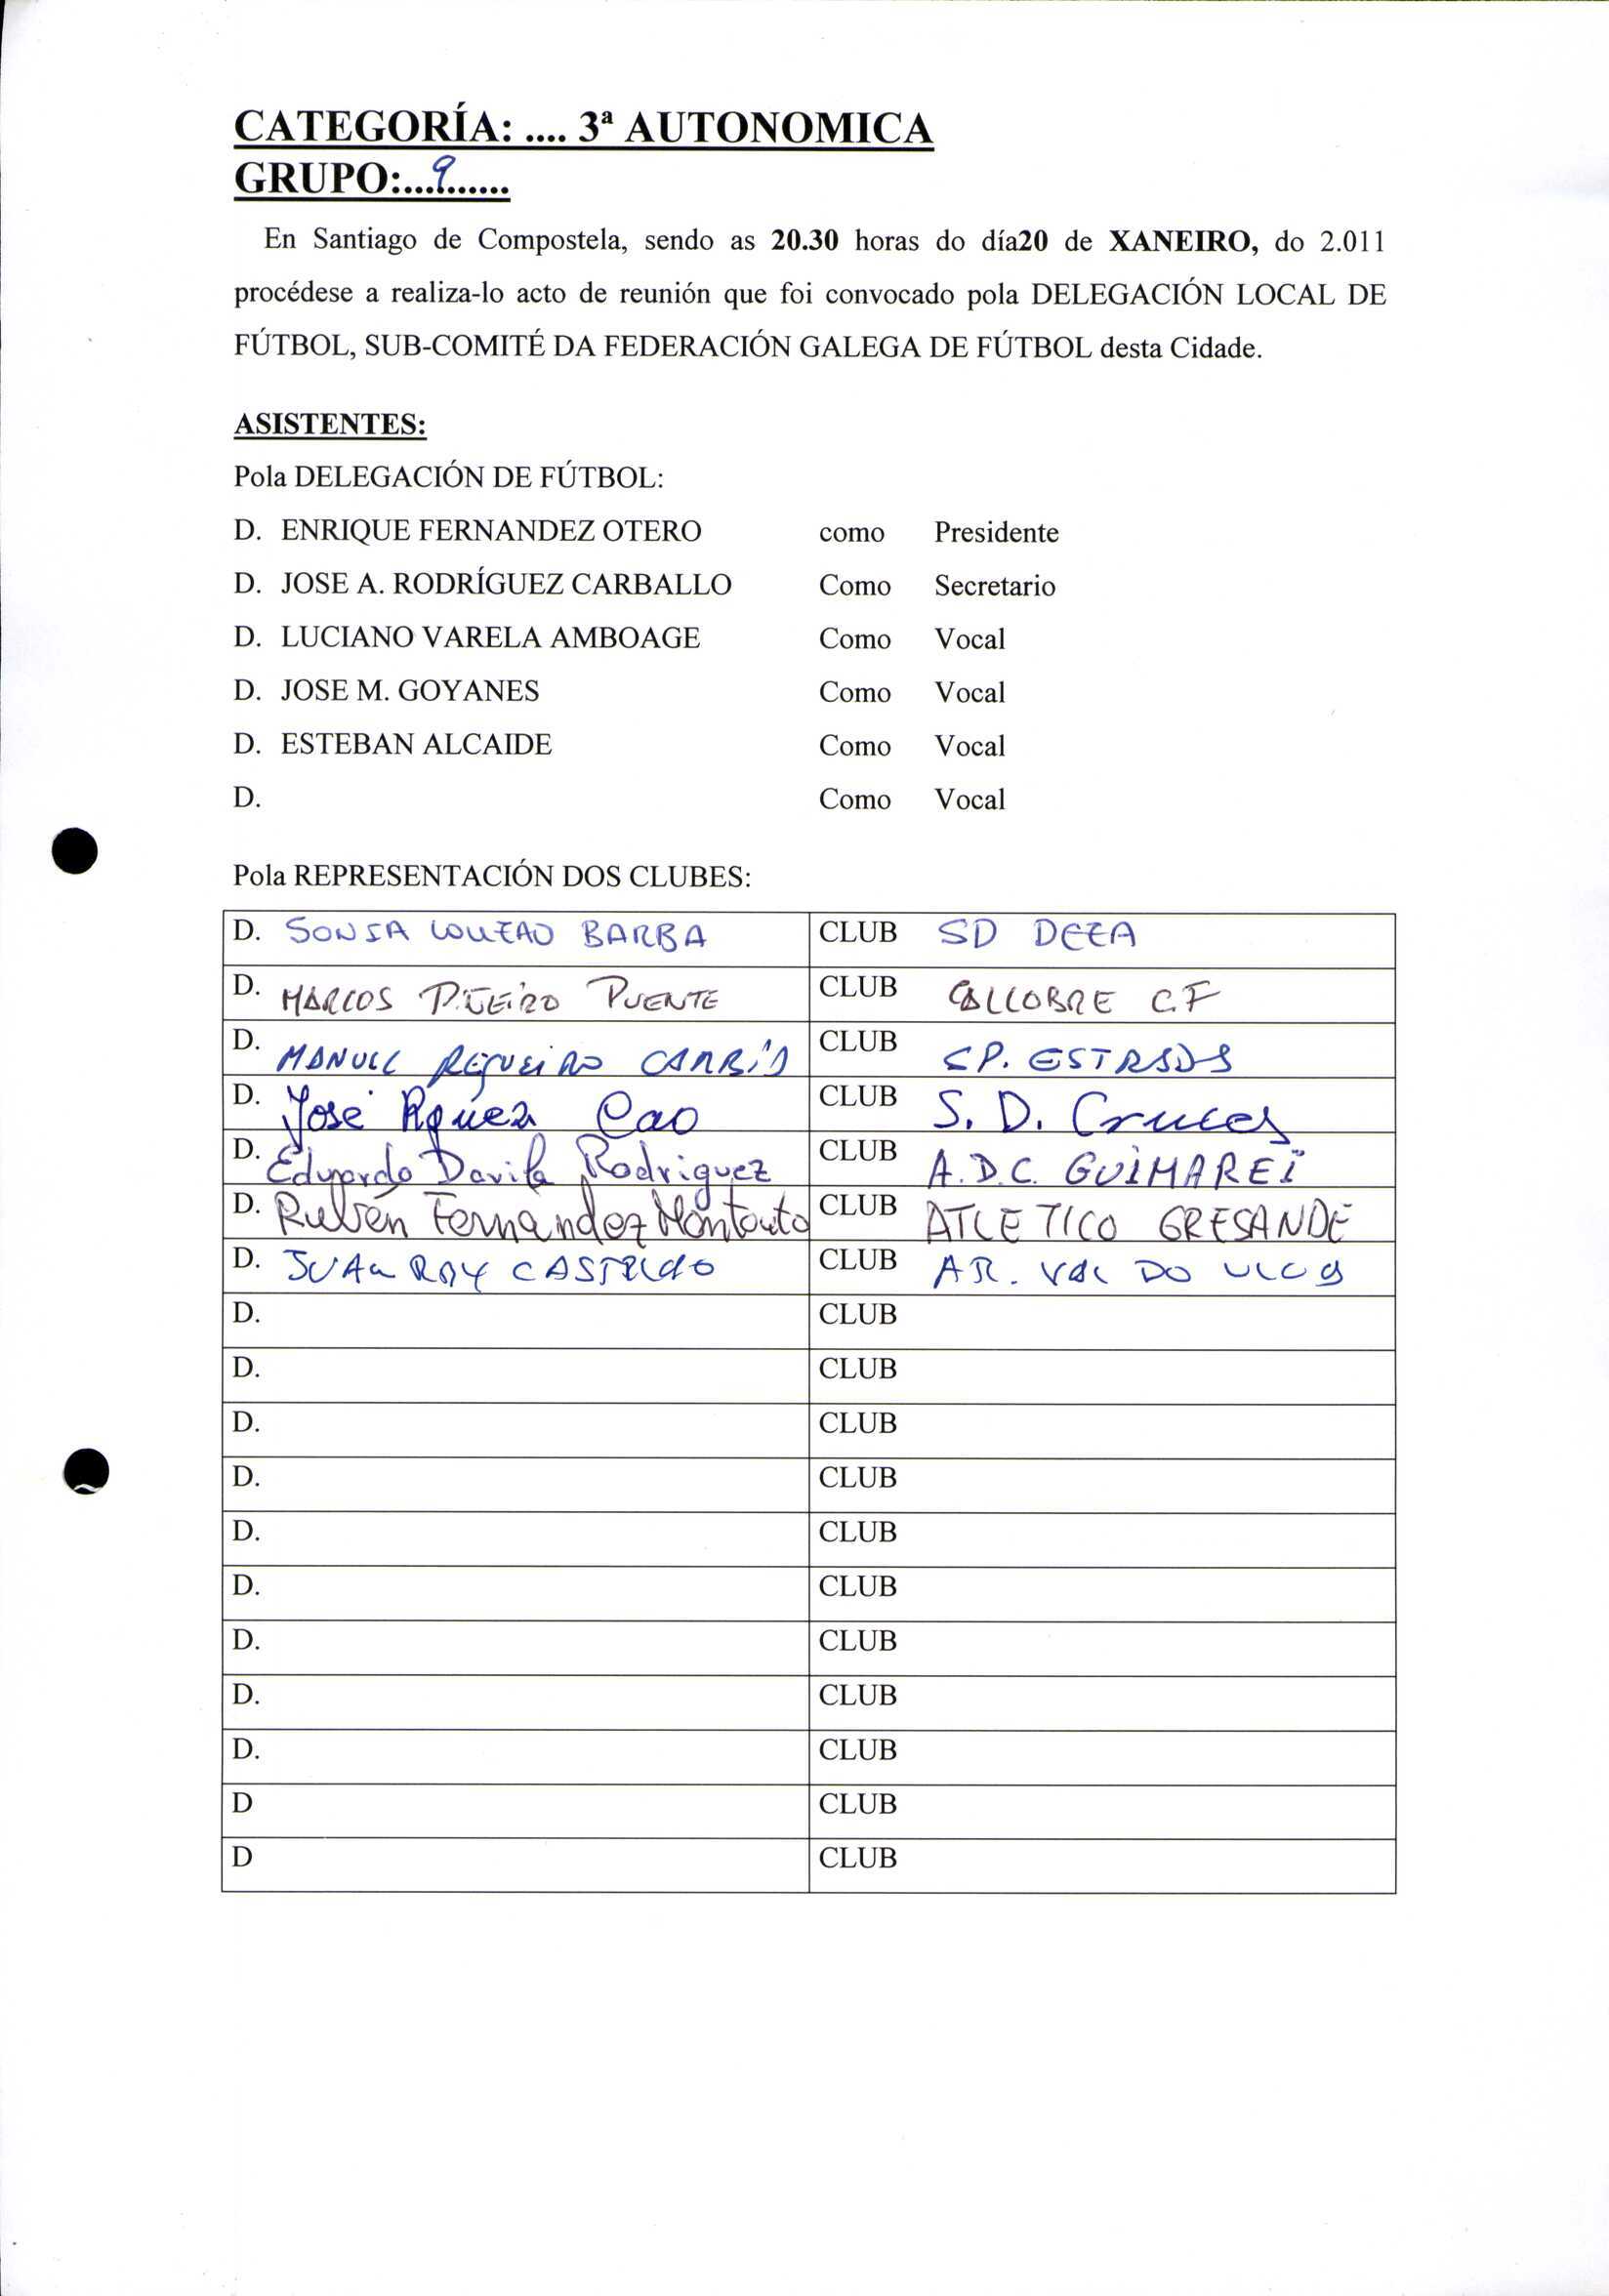 CATEGORÍA: .... 3ª AUTONOMICA
GRUPO:...9......
En Santiago de Compostela, sendo as 20.30 horas do día20 de XANEIRO, do 2.011
procédese a realiza-lo acto de reunión que foi convocado pola DELEGACIÓN LOCAL DE
FÚTBOL, SUB-COMITÉ DA FEDERACIÓN GALEGA DE FÚTBOL desta Cidade.
ASISTENTES:
Pola DELEGACIÓN DE FÚTBOL:
D. ENRIQUE FERNANDEZ OTERO como Presidente
D. JOSE A. RODRÍGUEZ CARBALLO Como Secretario
D. LUCIANO VARELA AMBOAGE Como Vocal
D. JOSE M. GOYANES Como Vocal
D. ESTEBAN ALCAIDE Como Vocal
D. Como Vocal
Pola REPRESENTACIÓN DOS CLUBES:
D. SONIA LOUZAO BARBA CLUB SD DEZA
D. MARCOS PIÑEIRO PUENTE CLUB CALLOBRE C.F
D. MANUEL REGUEIRO CLUB CP. ESTRADA
D. José Rguez Cao CLUB S. D. Cruces
D. Eduardo Davila Rodriguez CLUB A.D.C. GUIMAREI
D. Rubén Fernandez Montouto CLUB ATLETICO GRESANDE
D. JUAN RAY CLUB AR. VAL DO ULLA
D. CLUB
D. CLUB
D. CLUB
D. CLUB
D. CLUB
D. CLUB
D. CLUB
D. CLUB
D. CLUB
D CLUB
D CLUB